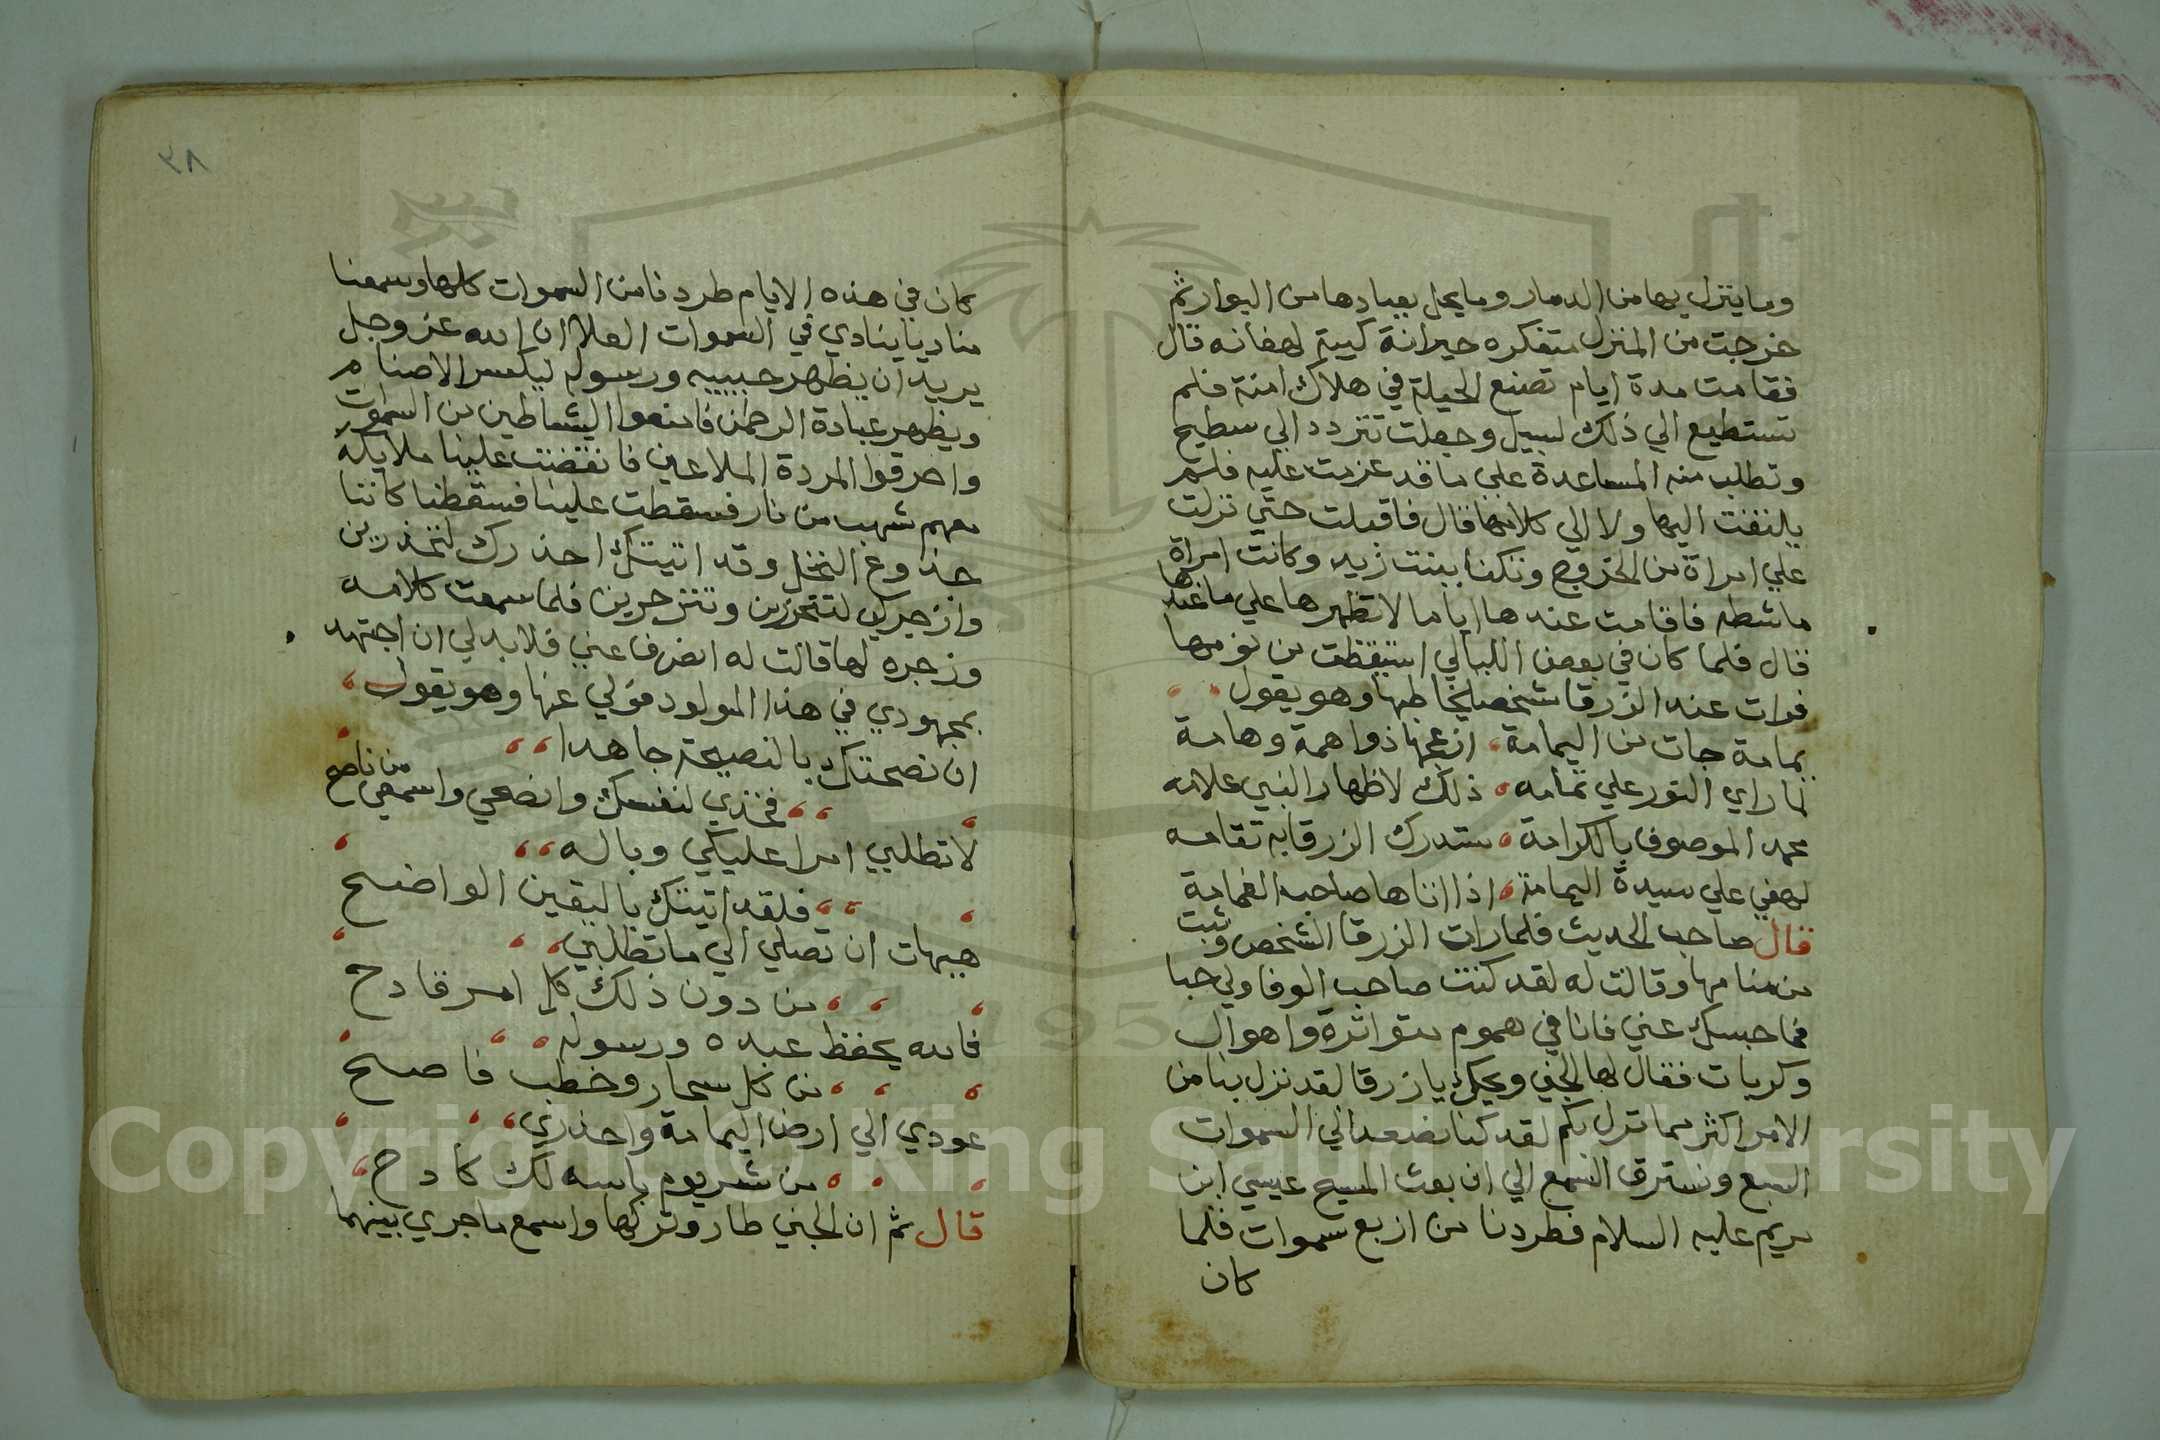 وما ينزل بها من الدمار وما يحل بعبادها من البوار ثم
خرجت من المنزل متفكره حيرانة كييبة لهفانه قال
فقامت مدة ايام تصنع الحيلة في هلاك امنة فلم
تستطيع الي ذلك لسبيل وجعلت تتردد الي سطيح
وتطلب منه المساعدة علي ما قد عزمت عليه فلم
يلتفت اليها ولا الي كلامها قال فاقبلت حتي نزلت
علي امراة من الخزرج وتكنا ببنت زيد وكانت امراة
ماشطه فاقامت عندها اياما لا تظهرها علي ما عندها
قال فلما كان في بعض الليالي استيقظت من نومها
فرات عند الزرقا شخصا يخاطبها وهو يقول
يمامة جات من اليمامة، ازعجها ذوا همة وهامة
لما راي النور علي تمامه، ذلك لاظهار النبي علامه
محمد الموصوف بالكرامة، ستدرك الزرقا به تقامه
لهفي علي سيدة اليمامة، اذا اتاها صاحب الغمامة
قال صاحب الحديث فلما رات الزرقا الشخص وثبت
من منامها وقالت له لقد كنت صاحب الوفا ولي حبا
فما حبسك عني فانا في هموم متواترة واهوال
وكربات فقال لها الجني ويحك يا زرقا لقد نزل بنا من
الامر اكثر مما نزل بكم لقد كنا نصعد الي السموات
السبع ونسترق السمع الي ان بعث المسيح عيسي ابن
مريم عليه السلام فطردنا من اربع سموات فلما
كان
٣٨
كان في هذه الايام طردنا من السموات كلها وسمعنا
مناديا ينادي في السموات العلا ان الله عز وجل
يريد ان يظهر حبيبه ورسوله ليكسر الاصنام
ويظهر عبادة الرحمن فامنعوا الشياطين من السموات
واحرقوا المردة الملاعين فانقضت علينا ملايكة
معهم شهب من نار فسقطت علينا فسقطنا كاننا
جذوع النخل وقد اتيتك احذرك لتحذرين
وازجرك لتحرزين وتنزجرين فلما سمعت كلامه
وزجره لها قالت له انصرف عني فلا بد لي ان اجتهد
بمجهودي في هذا المولود فولي عنها وهو يقول،
ان نصحتك بالنصيحة جاهدا،،
،، فخذي لنفسك وانصحي واسمعي من ناصح
لا تطلبي امرا عليكي وباله،،
،، فلقد اتيتك باليقين الواضح
هيهات ان تصلي الي ما تطلبين،،
،، من دون ذلك كل امر قادح
فالله يحفظ عبده ورسوله،،
،، من كل سحار وخطب فاصح
عودي الي ارض اليمامة واحذري،،
،، من شر يوم باسه لك كادح،
قال ثم ان الجني طار وتركها واسمع ما جري بينهما
Copyright © King Saud University
1957